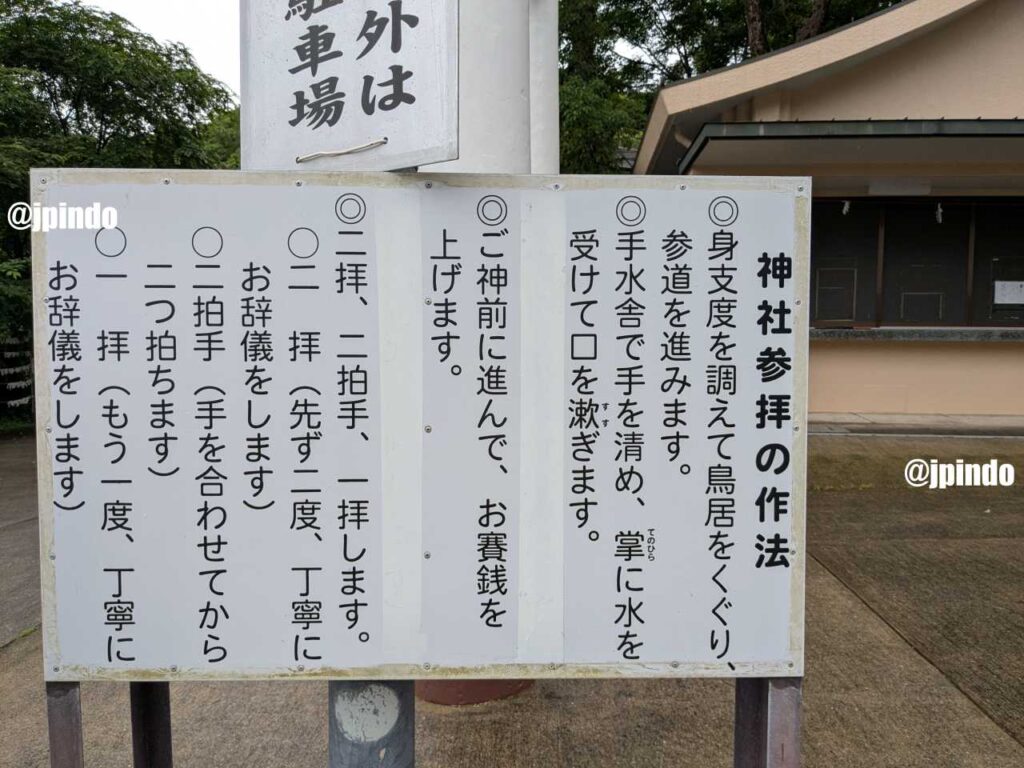 外は
駐車場
神社参拝の作法
◎身支度を調えて鳥居をくぐり、
参道を進みます。
◎手水舎で手を清め、掌に水を
てのひら
受けて口を漱ぎます。
すす
◎ご神前に進んで、お賽銭を
上げます。
◎二拝、二拍手、一拝します。
○二　拝（先ず二度、丁寧に
お辞儀をします）
○二拍手（手を合わせてから
二つ拍ちます）
○一　拝（もう一度、丁寧に
お辞儀をします）
@jpindo
@jpindo